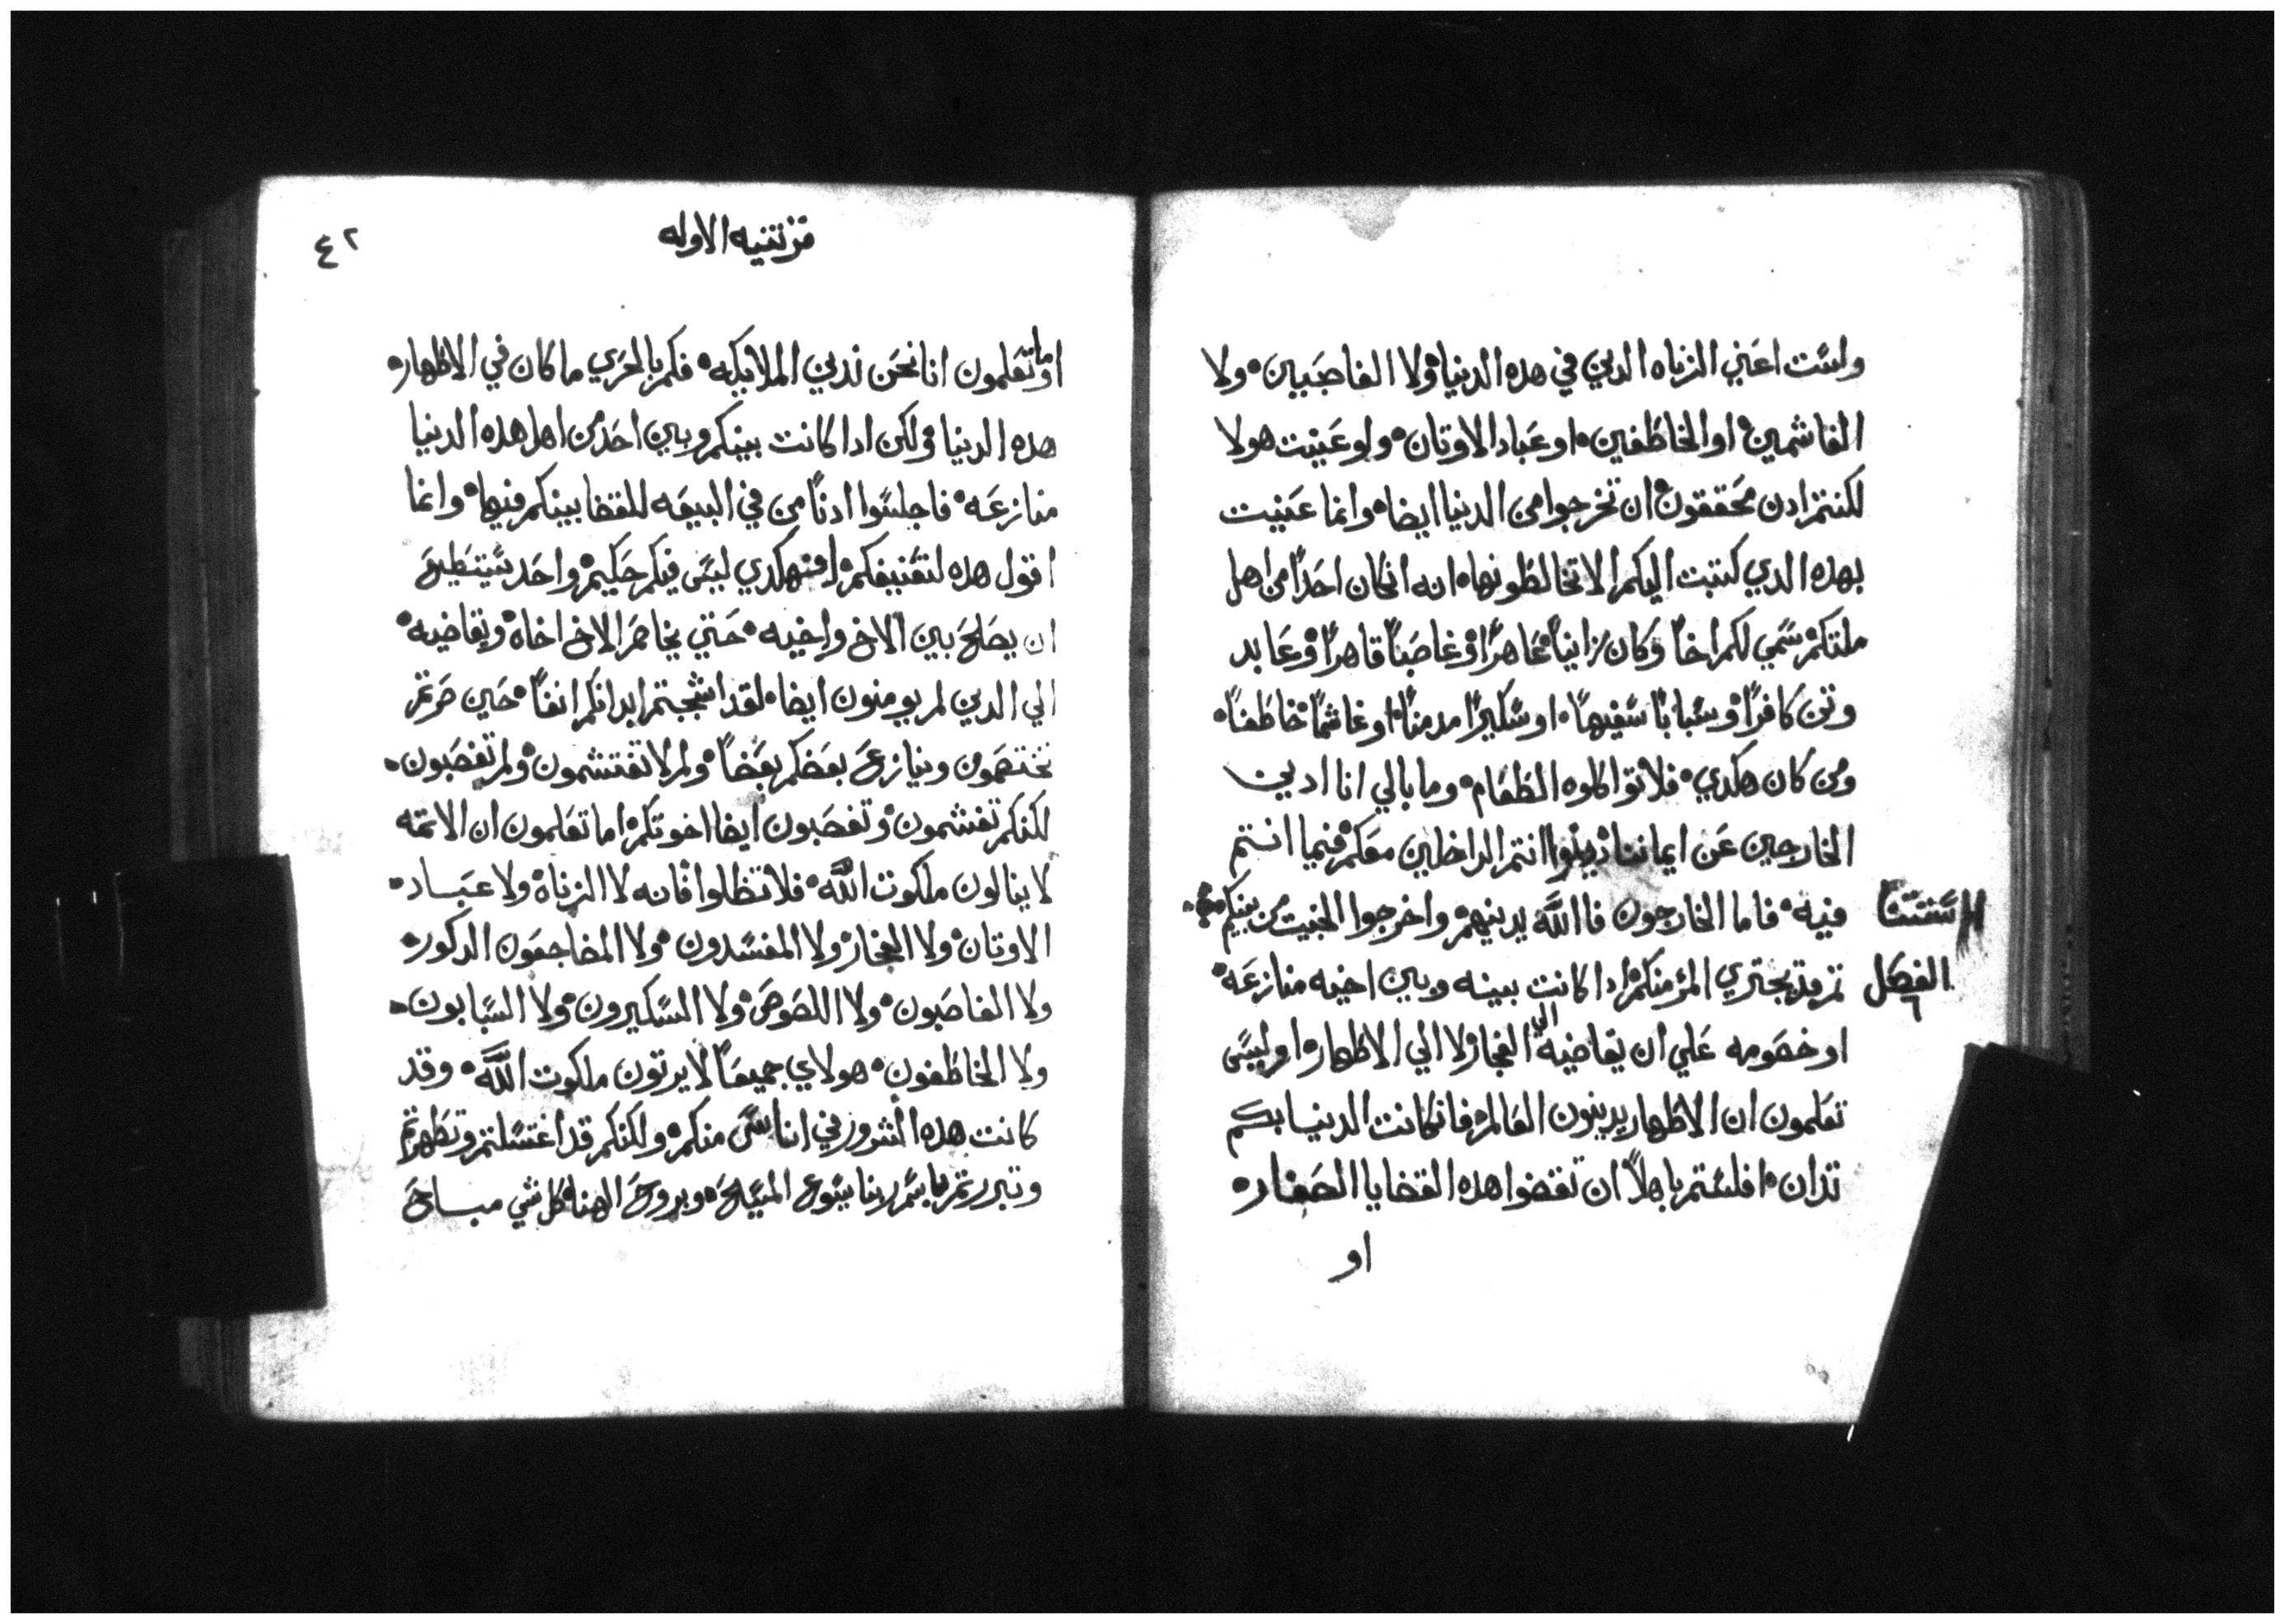 ولست اعني الزناه الدين في هده الدنيا ولا الغاصبين ولا
الغاشمين او الخاطفين او عباد الاوتان ولو عنيت هولا
لكنتم ادن محققون ان تخرجوا من الدنيا ايضا وانما عنيت
بهده الدي كتبت اليكم الا تخالطونها انه انكان احدًا من اهل
ملتكم سمي لكم اخاً وكان زانياً عاهراً او غاصباً قاهراً او عابد
وتن كافراً او سباباً سفيهاً او سكيراً مدمناً او غاشماً خاطفاً
ومن كان هكدي فلا تواكلوه الطعام وما بالي انا ادين
الخارجين عن ايماننا دينوا انتم الداخلين معكم فيما انتم
فيه فاما الخارجون فاالله يدينهم واخرجوا الخبيت من بينكم
الفصل ٦
تم قد يجتري المؤ منكم ادا كانت بينه وبين اخيه منازعه
او خصومه علي ان يقاضيه الي الفجار ولا الي الاطهار او ليس
تعلمون ان الاطهار يدينون العالم فانكانت الدنيا بكم
تدان افلستم باهلاً ان تقضوا هده القضايا الصغار
او
قرنتيه الاوله
٤٢
او ما تعلمون انا نحن ندين الملايكه فكم بالحري ما كان في الاظهار
هده الدنيا ولكن ادا كانت بينكم وبين احد من اهل هده الدنيا
منازعه فاجلسوا ادناً من في البيعه للقضا بينكم فيها وانما
اقول هده لتعنيفكم افهكدي ليس فيكم حكيم واحد يستطيع
ان يصلح بين الاخ واخيه حتي يخاصم الاخ اخاه ويقاضيه
الي الدين لم يومنون ايضا لقد اشجبتم ابدانكم انفاً حين صرتم
تختصمون وينازع بعضكم بعضاً ولم لا تغتشمون ولم تغصبون
لكنكم تغشمون وتغصبون ايضا اخوتكم اما تعلمون ان الاتمه
لا ينالون ملكوت الله فلا تظلوا فانه لا الزناة ولا عباد
الاوتان ولا الفجار ولا المفسدون ولا المضاجعون الدكور
ولا الغاصبون ولا اللصوص ولا السكيرون ولا السبابون
ولا الخاطفون هولاي جميعاً لا يرتون ملكوت الله وقد
كانت هده الشرور في اناس منكم ولكنكم قد اغتسلتم وتطهرتم
وتبررتم باسم ربنا يسوع المسيح وبروح الهنا كل شي مباح